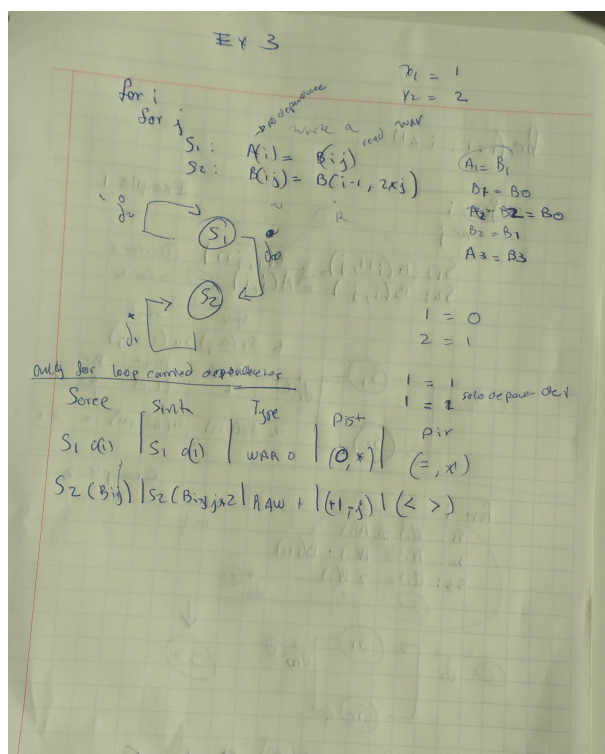 Ex 3
x1 = 1
y2 = 2
for i
for j
no dependence
write a read WAR
S1: A(i) = B(ij)
S2: B(ij) = B(i-1, 2*j)
R
A1 = B1
B1 = B0
A2 = B2 = B0
B2 = B1
A3 = B3
S1
S2
1 = 0
2 = 1
1 = 1
1 = 2
only for loop carried dependencies
Sorce | Sink | Type | Dist | Dir
S1 a(i) | S1 a(i) | WAR o | (0,*) | (=, *)
S2 (Bij) | S2 (Bi-1 j*2 | RAW + | (+1,-j) | (< >)